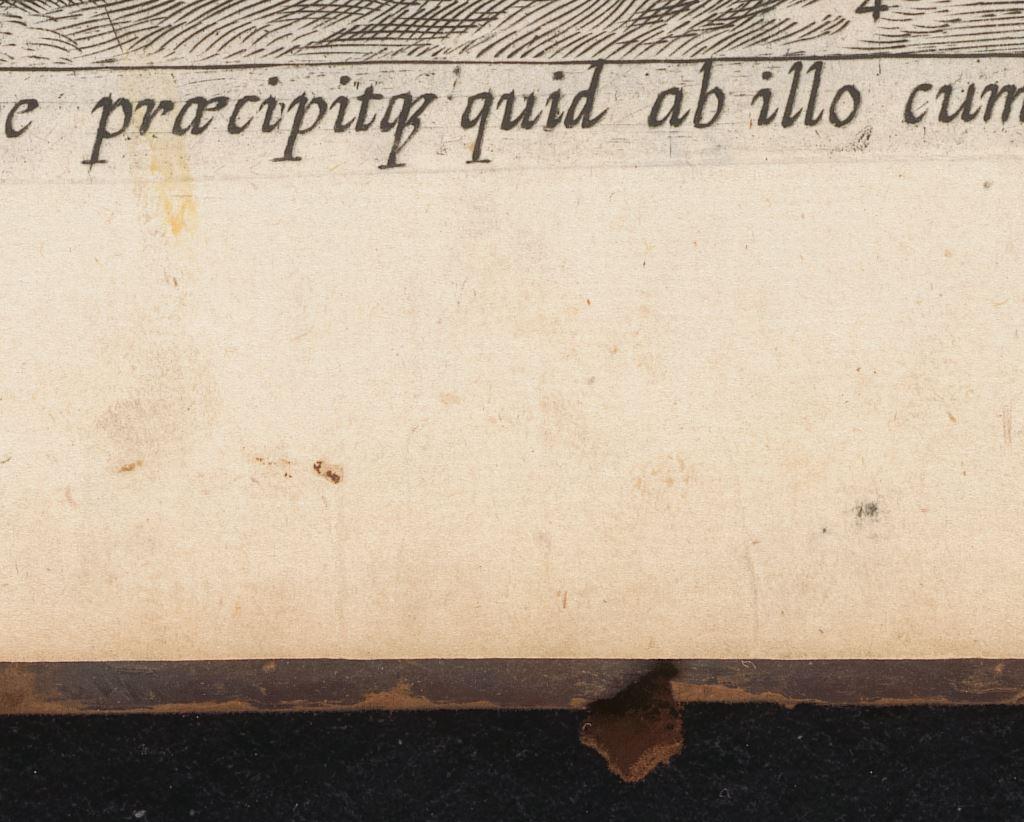 4
e præcipitqꝫ quid ab illo cum